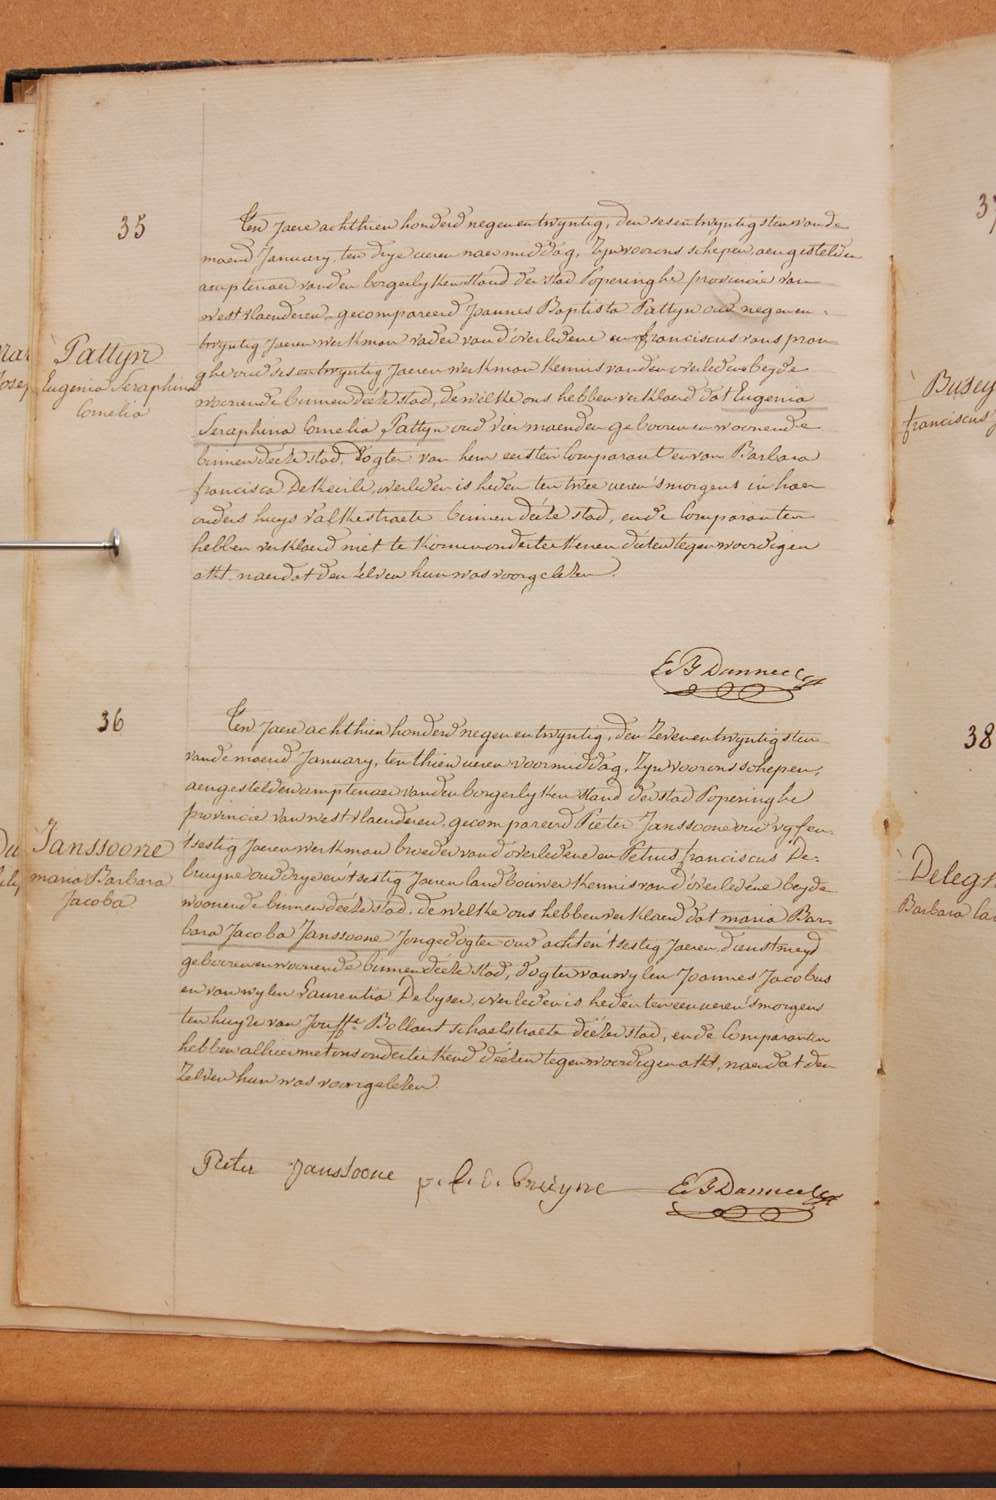 35
Pattyn
Eugenia Seraphina
Cornelia
Ten Jaere achthien honderd negenentwyntig, den sesentwyntigsten vande
maend January, ten drye ueren naermiddag, Zyn voor ons schepen, aengestelden
amptenaer van den borgerlyken stand der stad Poperinghe provincie van
westvlaenderen, gecompareerd Joannes Baptista Pattyn oud negenen-
twyntig Jaeren werkman vader van d'overledene en franciscus vanspran-
ghe oud sesentwyntig Jaeren werkman kennis van den overledene beyde
woonende binnen deéze stad, dewelke ons hebben verklaerd dat Eugenia
Seraphina Cornelia Pattyn oud vier maenden gebooren en woonende
binnen deéze stad, dogter van hem eersten Comparant en van Barbara
francisca, overleden is heden ten twee ueren s'morgens in haer
ouders huys Valkestraete binnen deéze stad, ende Comparanten
hebben verklaerd niet te konnen onderteekenen deézen tegenwoordigen
akt, naerdat den Zelven hun was voorgelezen.
36
Janssoone
maria Barbara
Jacoba
Ten Jaere achthien honderd negenentwyntig, den Zevenentwyntigsten
vande maend January, ten thien ueren voormiddag, Zyn voor ons schepen,
aengestelden amptenaer van den borgerlyken stand der stad Poperinghe
provincie van westvlaenderen, gecompareerd Pieter Janssoone oud vyfen-
tsestig Jaeren werkman broeder van d'overledene en Petrus franciscus De-
bruyne oud drye en tsestig Jaeren landbouwer kennis van d'overledene beyde
woonende binnen deéze stad, dewelke ons hebben verklaerd dat maria Bar-
bara Jacoba Janssoone Jongedogter oud acht en tsestig Jaeren, dienstmeyd
gebooren en woonende binnen deéze stad, dogter van wylen Joannes Jacobus
en van wylen Laurentia Debyser, overleden is heden ten een ueren s'morgens
ten huyze van Jouffe. Bollaert schaelstraete deézer stad, ende Comparanten
hebben alhier met ons onderteekend deézen tegenwoordigen akt, naerdat den
Zelven hun was voorgelezen.
Pieter Janssoone
p. f. d. bruyne
37
Busey
franciscus
38
Delegh
Barbara